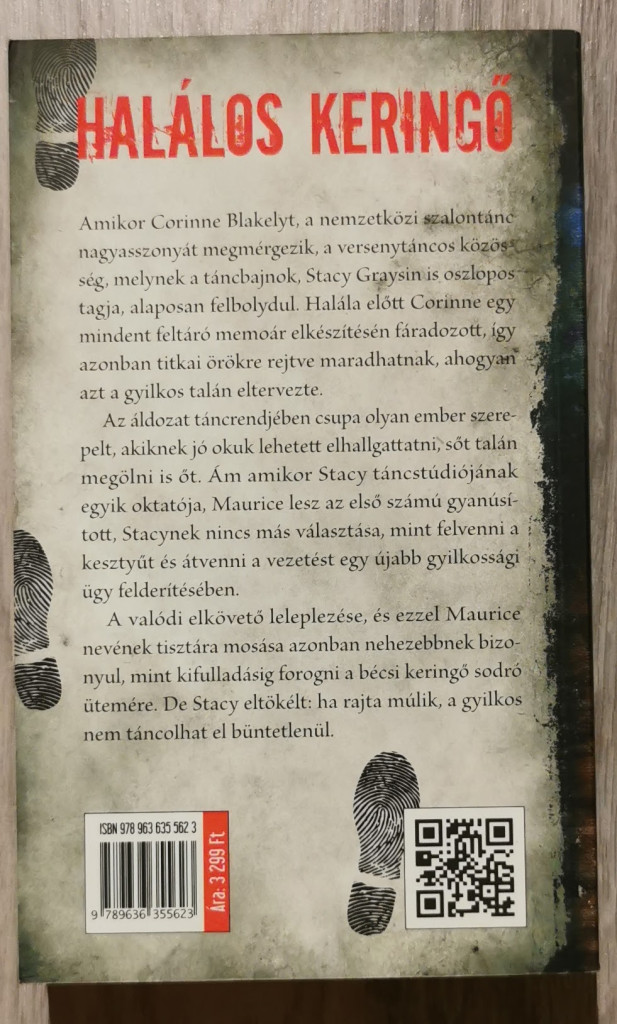 HALÁLOS KERINGŐ
Amikor Corinne Blakelyt, a nemzetközi szalontánc
nagyasszonyát megmérgezik, a versenytáncos közös-
ség, melynek a táncbajnok, Stacy Graysin is oszlopos
tagja, alaposan felbolydul. Halála előtt Corinne egy
mindent feltáró memoár elkészítésén fáradozott, így
azonban titkai örökre rejtve maradhatnak, ahogyan
azt a gyilkos talán eltervezte.
Az áldozat táncrendjében csupa olyan ember szere-
pelt, akiknek jó okuk lehetett elhallgattatni, sőt talán
megölni is őt. Ám amikor Stacy táncstúdiójának
egyik oktatója, Maurice lesz az első számú gyanúsí-
tott, Stacynek nincs más választása, mint felvenni a
kesztyűt és átvenni a vezetést egy újabb gyilkossági
ügy felderítésében.
A valódi elkövető leleplezése, és ezzel Maurice
nevének tisztára mosása azonban nehezebbnek bizo-
nyul, mint kifulladásig forogni a bécsi keringő sodró
ütemére. De Stacy eltökélt: ha rajta múlik, a gyilkos
nem táncolhat el büntetlenül.
ISBN 978 963 635 562 3
9 789636 355623
Ára: 3 299 Ft